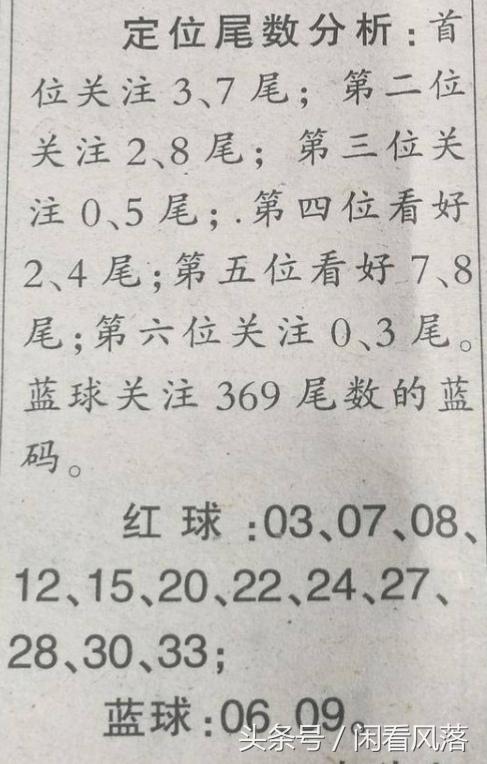 定位尾数分析:首
位关注3、7尾;第二位
关注2、8尾;第三位关
注0、5尾;.第四位看好
2、4尾;第五位看好7、8
尾;第六位关注0、3尾。
蓝球关注369尾数的蓝
码。
红球:03、07、08、
12、15、20、22、24、27、
28、30、33;
蓝球:06、09。
头条号/闲看风落